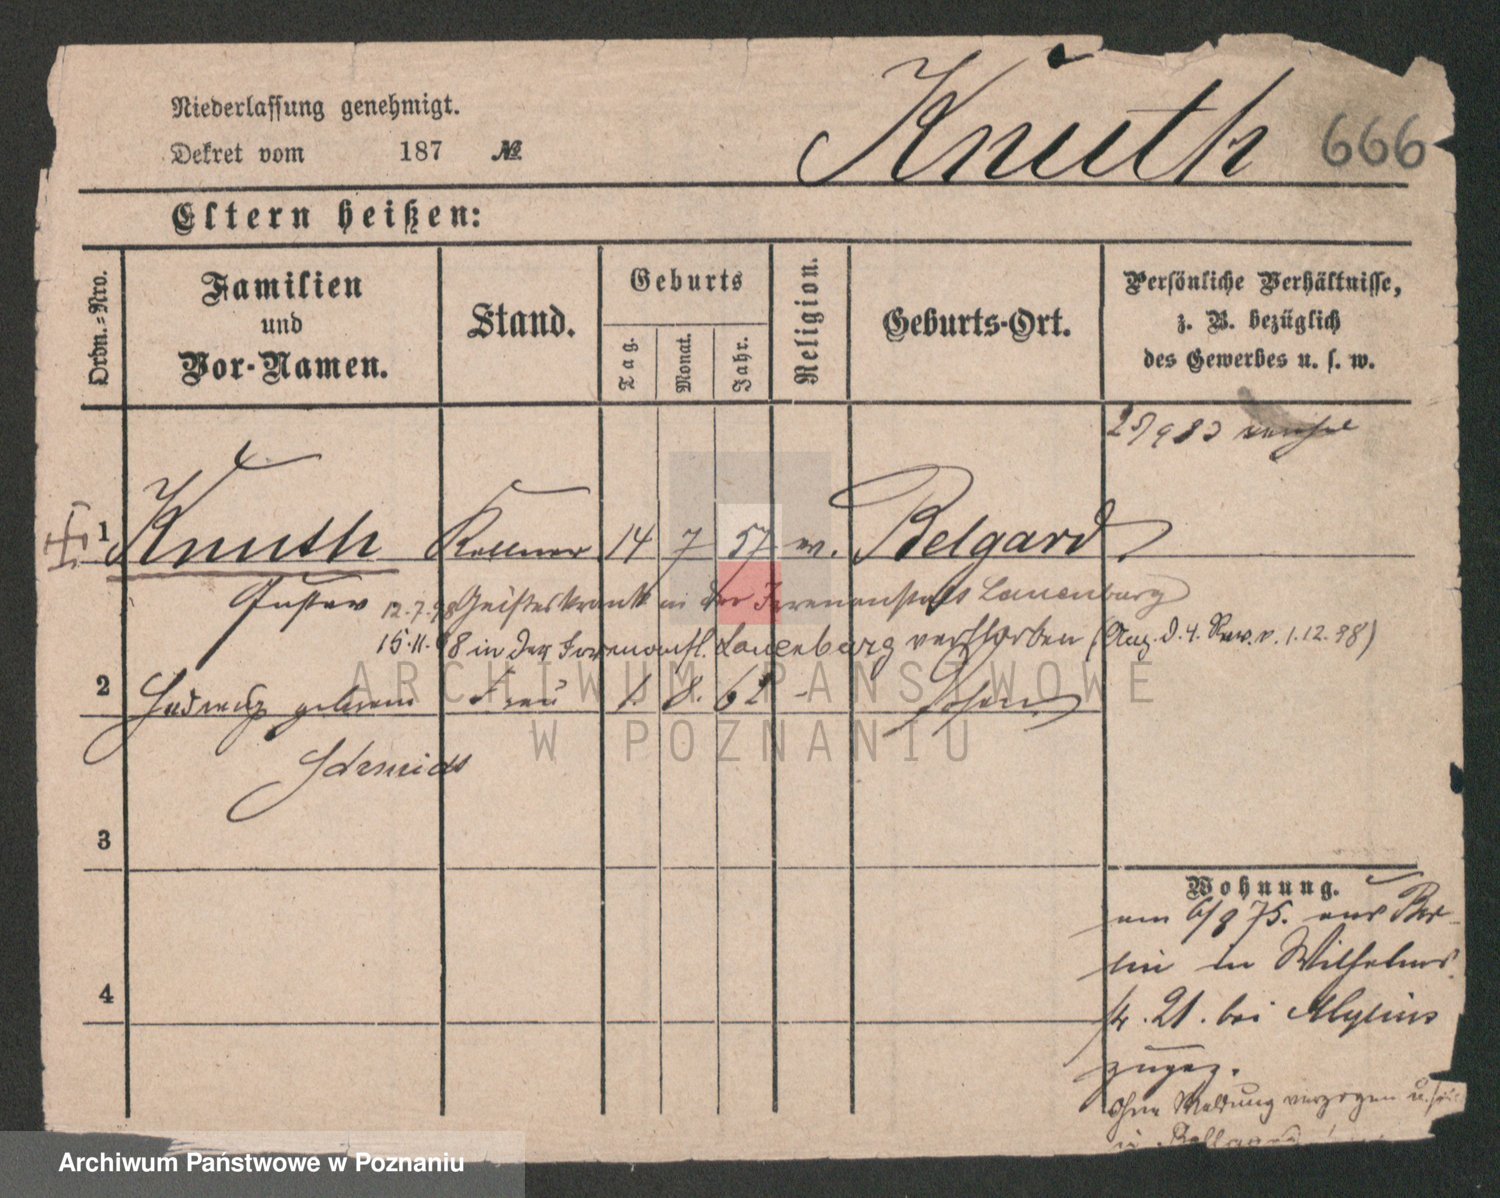 Niederlassung genehmigt.
Dekret vom 187 №
Knuth 666
Eltern heißen:
Ordn.-Nro.
Familien
und
Vor-Namen.
Stand.
Geburts
Tag.
Monat.
Jahr.
Religion.
Geburts-Ort.
Persönliche Verhältnisse,
z. B. bezüglich
des Gewerbes u. s. w.
25/9 83
1 Knuth Kellner 14 7 57 ev. Belgard
Gustav 12.7.98 Geisteskrank in der Irrenanstalt Lauenburg
15.11.98 in der Irrenanst. Lauenburg verstorben (Anz. d. 4. Rev. v. 1.12.98)
2 Hedwig geborene Frau 1. 8. 62 -
Schmidt
3
4
Wohnung.
am 6/9 75. aus Ber-
lin in Wilhelms
str. 21. bei Mylius
zugez.
Ohne Meldung verzogen u.
in
ARCHIWUM PAŃSTWOWE
W POZNANIU
Archiwum Państwowe w Poznaniu